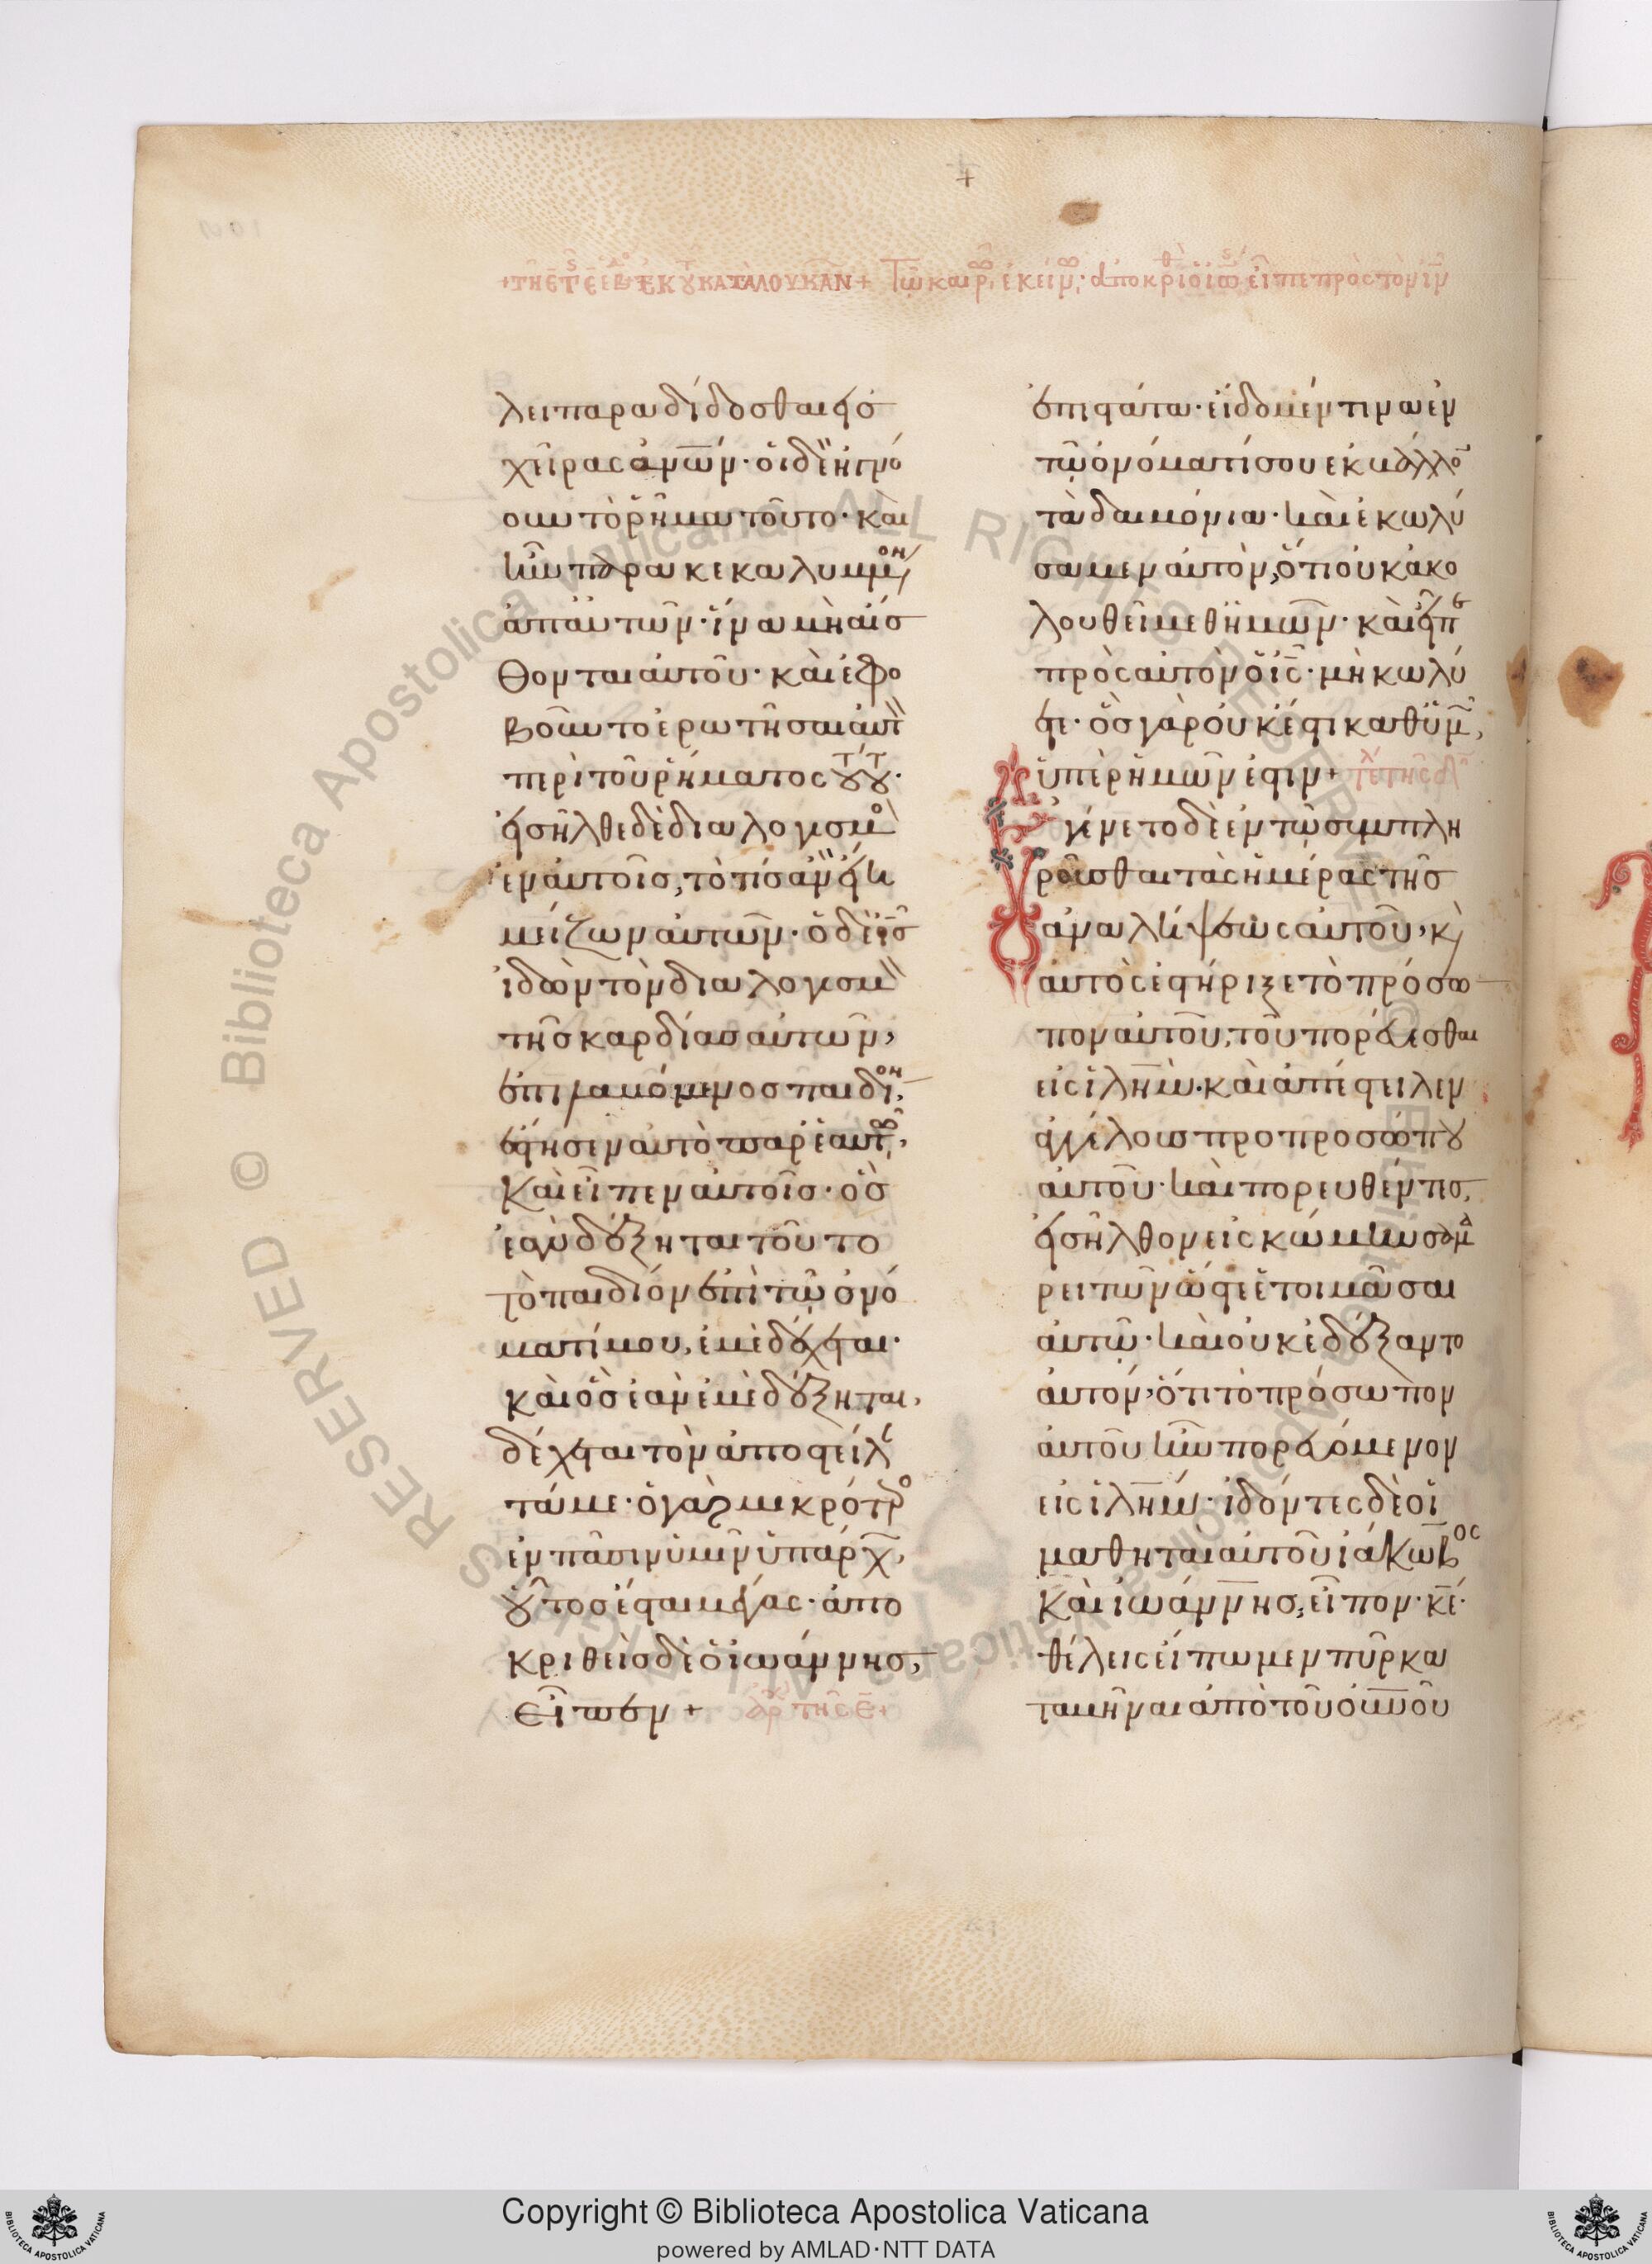 λει παραδίδοσθαι εἰς
χεῖρας ἀνων· οἱ δὲ ἠγνό
ουν τὸ ῥῆμα τοῦτο· καὶ
ἦν παρακεκαλυμμον
ἀπ αὐτῶν· ἵνα μὴ αἴσ
θονται αὐτοῦ· καὶ ἐφο
βοῦντο ἐρωτῆσαι αὐτ
περὶ τοῦ ῥήματος τούτου·
εἰσῆλθε δὲ διαλογισμο
ἐν αὐτοῖς, τὸ τίς ἂν εἴη
μείζων αὐτῶν· ὁ δὲ ις
ἰδὼν τὸν διαλογισμ
τῆς καρδίας αὐτῶν,
ἐπιλαβόμενος παιδίον,
ἔστησεν αὐτὸ παρ ἑαυτῶ,
καὶ εἶπεν αὐτοῖς· ὃς
ἐὰν δέξηται τοῦτο
τὸ παιδίον ἐπὶ τῷ ὀνό
ματί μου, ἐμὲ δέχεται·
καὶ ὃς ἐὰν ἐμὲ δέξηται,
δέχεται τὸν ἀποστείλ
τά με· ὁ γὰρ μικρότρο
ἐν πᾶσιν ὑμῖν ὑπάρχ,
οὗτος ἔσται μέγας· ἀπο
κριθεὶς δὲ ὁ ἰωάννης,
εἶπεν + ἀρχ τῆς ε +
ἐπιστάτα· εἴδομέν τινα ἐν
τῷ ὀνόματί σου ἐκβάλλο
τὰ δαιμόνια· καὶ ἐκωλύ
σαμεν αὐτὸν, ὅτι οὐκ ἀκο
λουθεῖ μεθ ἡμῶν· καὶ εἶπε
πρὸς αὐτὸν ὁ ις· μὴ κωλύ
ετε· ὃς γὰρ οὐκ ἔστι καθ ὑμ,
ὑπὲρ ἡμῶν ἐστιν +
Ἐγένετο δὲ ἐν τῷ συμπλη
ροῦσθαι τὰς ἡμέρας τῆς
ἀναλήψεως αὐτοῦ, κ
αὐτὸς ἐστήριξε τὸ πρόσω
πον αὐτοῦ, τοῦ πορεύεσθαι
εἰς ἰλημ· καὶ ἀπέστειλεν
ἀγγέλους πρὸ προσώπου
αὐτοῦ· καὶ πορευθέντες,
εἰσῆλθον εἰς κώμην σαμα
ρειτῶν ὥστε ἑτοιμᾶσαι
αὐτῷ· καὶ οὐκ ἐδέξαντο
αὐτόν, ὅτι τὸ πρόσωπον
αὐτοῦ ἦν πορευόμενον
εἰς ἰλημ· ἰδόντες δὲ οἱ
μαθηταὶ αὐτοῦ ἰάκωβος
καὶ ἰωάννης, εἶπον· κε·
θέλεις εἴπωμεν πῦρ κα
ταβῆναι ἀπὸ τοῦ οὐνοῦ
Copyright © Biblioteca Apostolica Vaticana
powered by AMLAD·NTT DATA